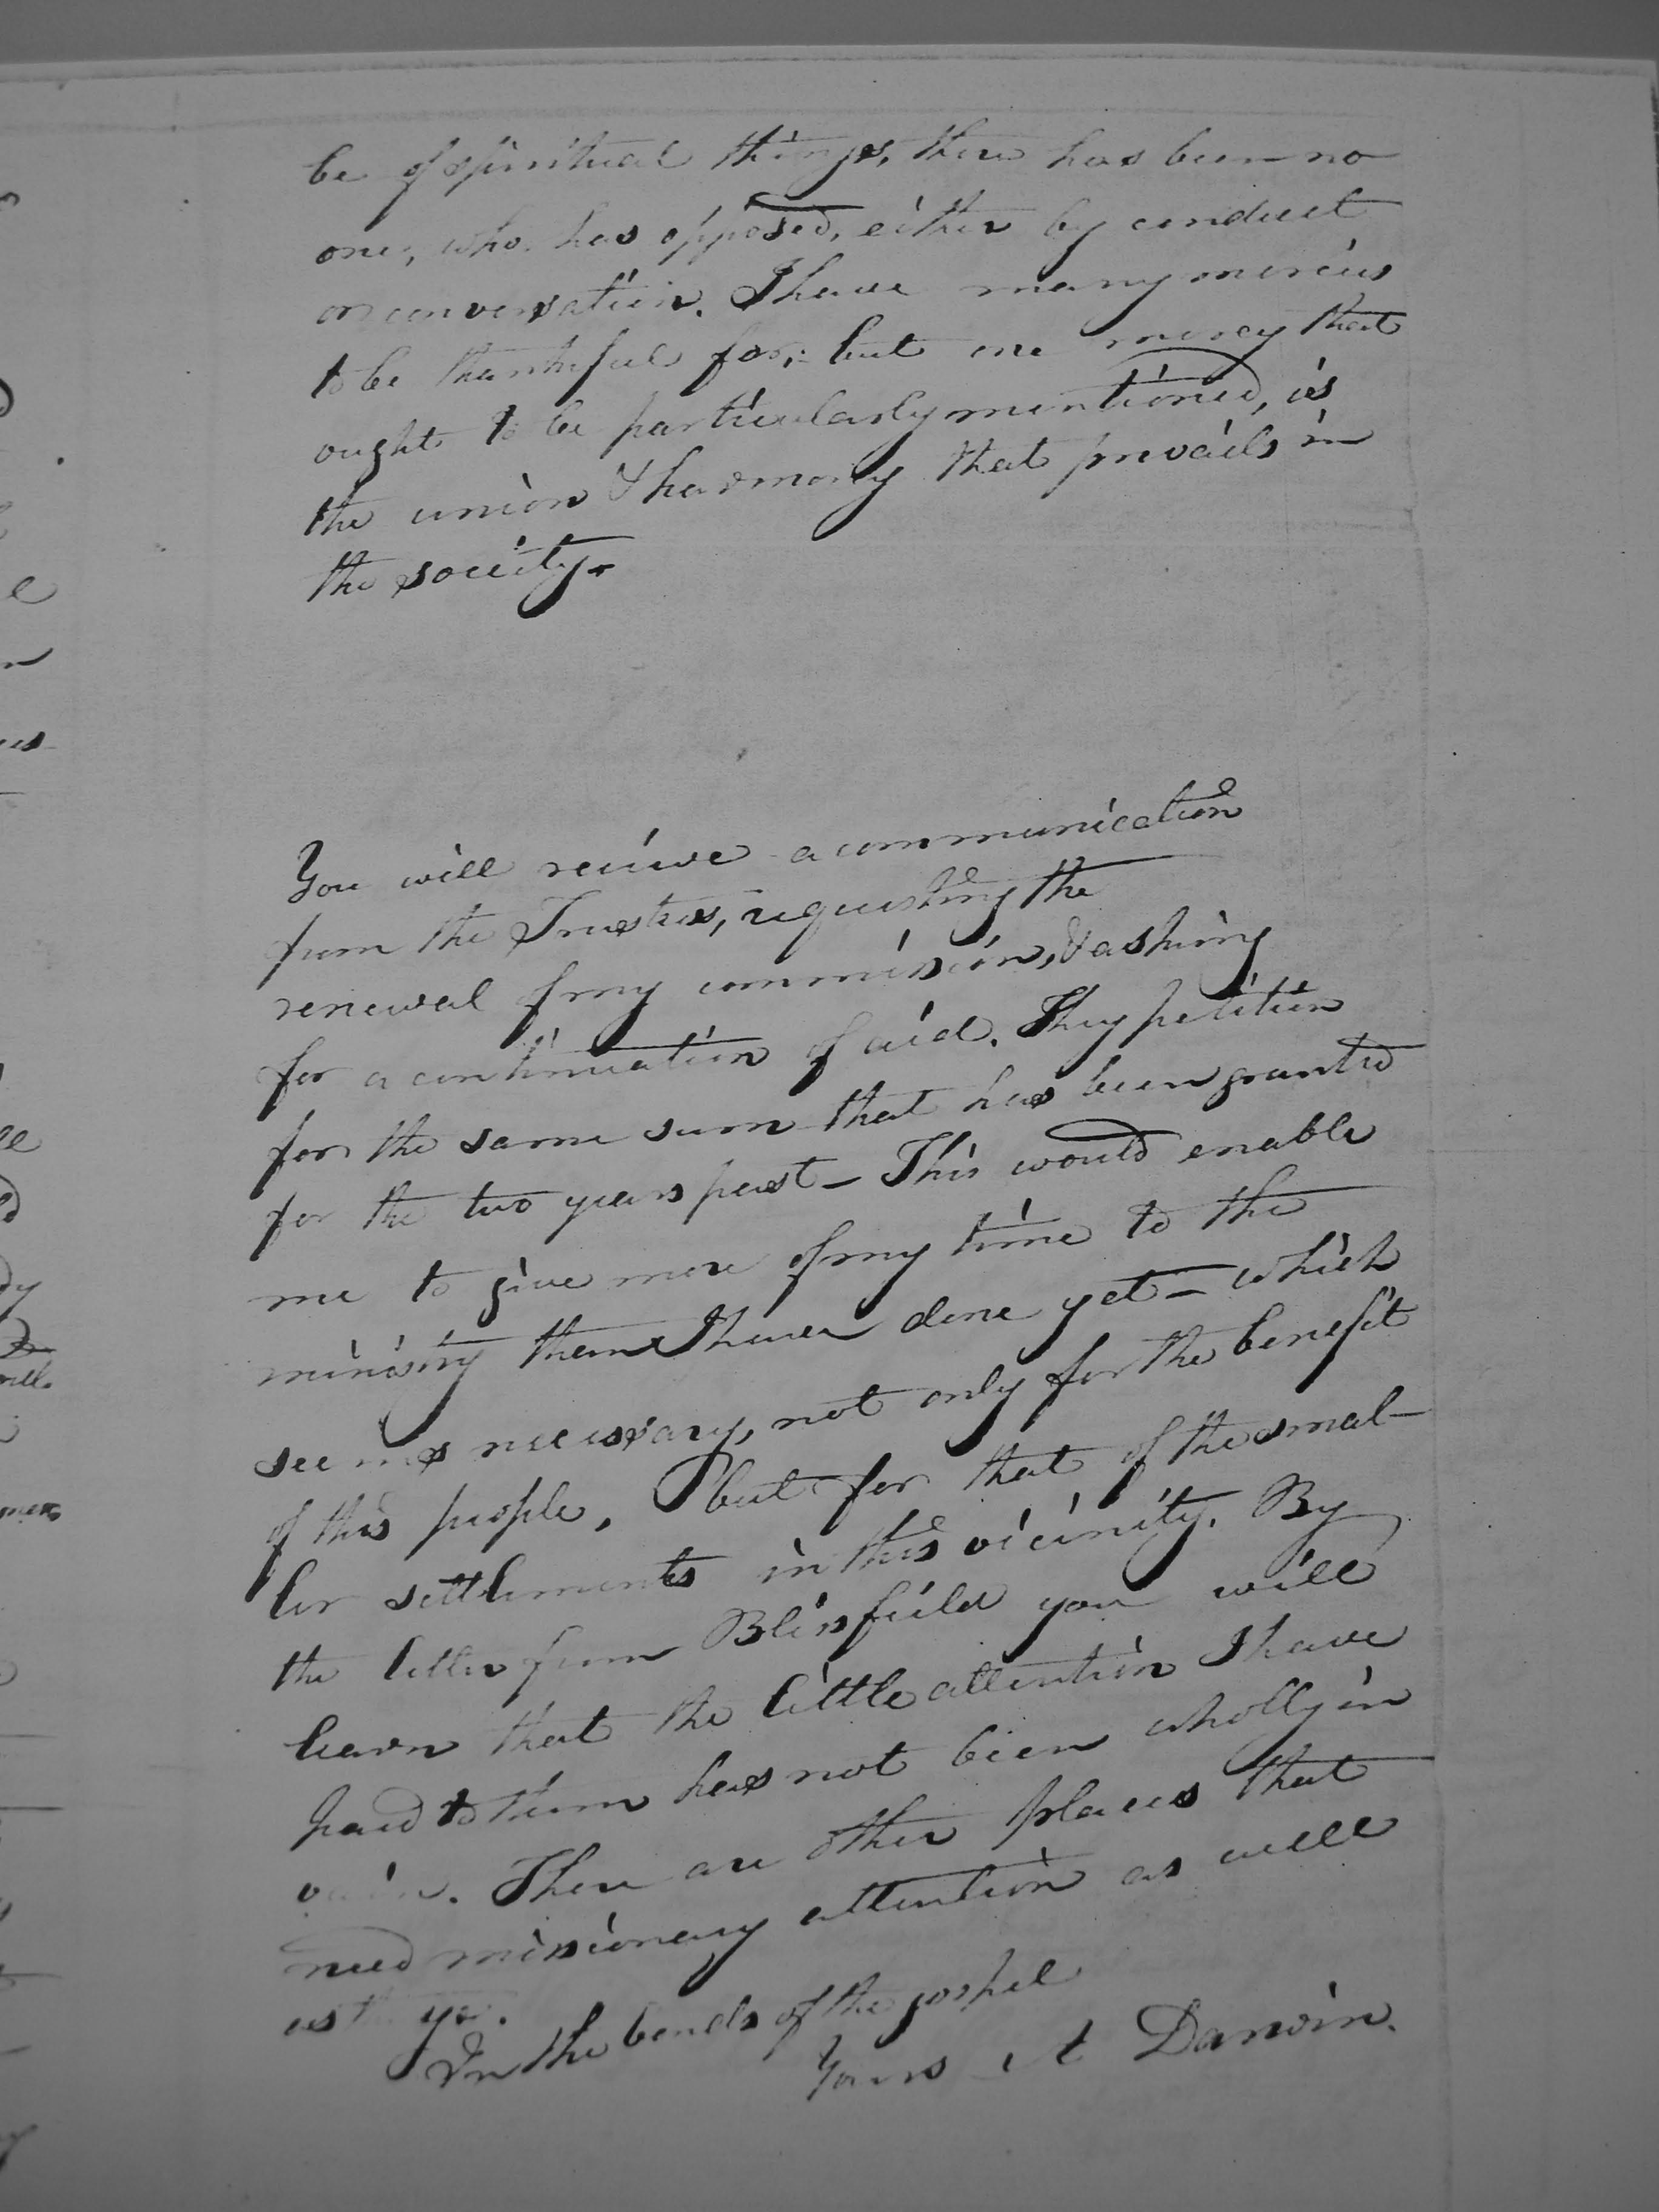 be of spiritual things, there has been no
one, who has opposed, either by conduct
or conversation. I have many mercies
to be thankful for; but one mercy that
ought to be particularly mentioned, is
the union & harmony that prevails in
the society.
You will recieve a communication
from the Trustees, requesting the
renewal of my commission, & asking
for a continuation of aid. They petition
for the same sum that has been granted
for the two years past – This would enable
me to give more of my time to the
ministry than I have done yet – which
seems necessary, not only for the benefit
of this people, but for that of the smal-
ler settlements in this vicinity. By
the letter from Blissfield you will
learn that the little attention I have
paid to them has not been wholly in
vain. There are other places that
need missionary attention as well
as
In the bonds of the gospel
Yours A Darwin.